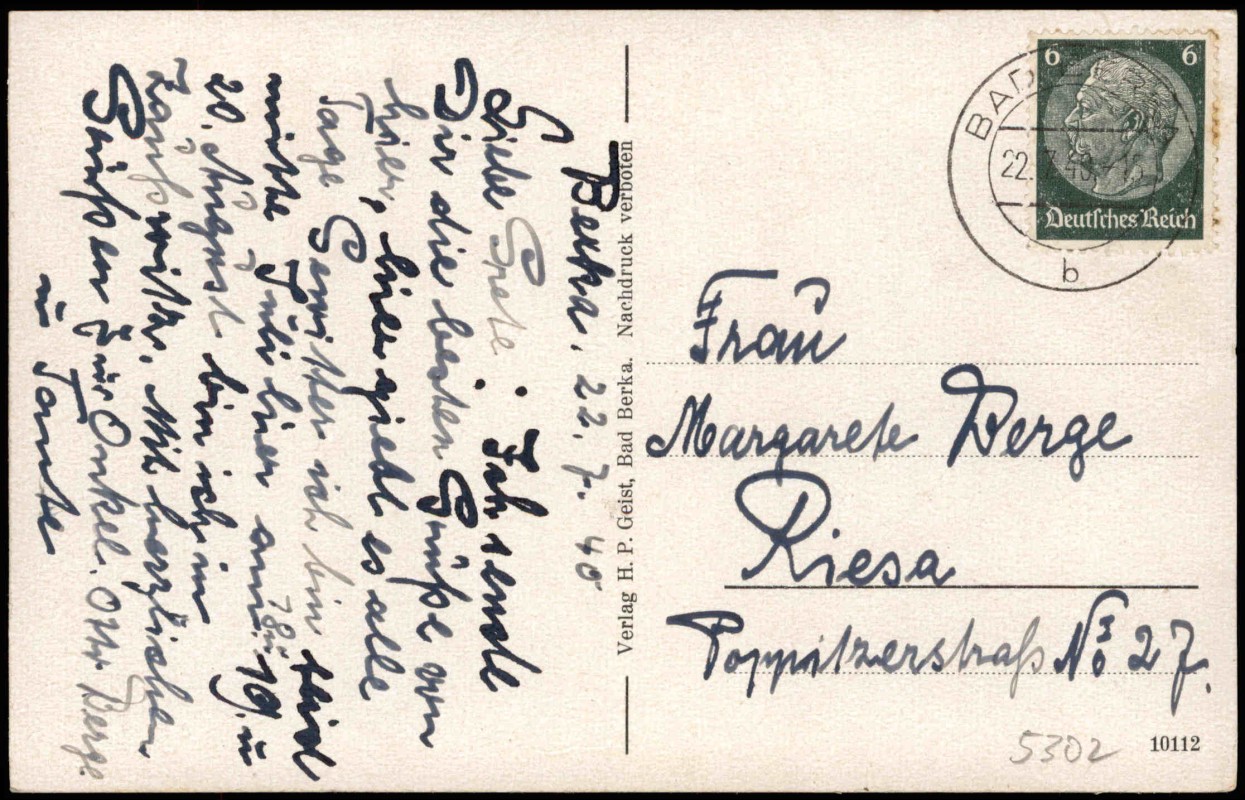 Berka, 22. 7. 40
Liebe Grete. Ich sende
Dir die besten Grüße von
hier, hier giebt es alle
Tage Gewitter ich bin seid
mitte Juli hier am 18. u 19. u
20. August bin ich in
Zauschwitz. Mit herzlichen
Grüßen Dein Onkel Otto Berge
u Tante
Verlag H. P. Geist, Bad Berka. Nachdruck verboten
6 6
Deutsches Reich
BAD
22. 7. 40
b
Frau
Margarete Berge
Riesa
Poppitzerstraß No 27.
5302
10112